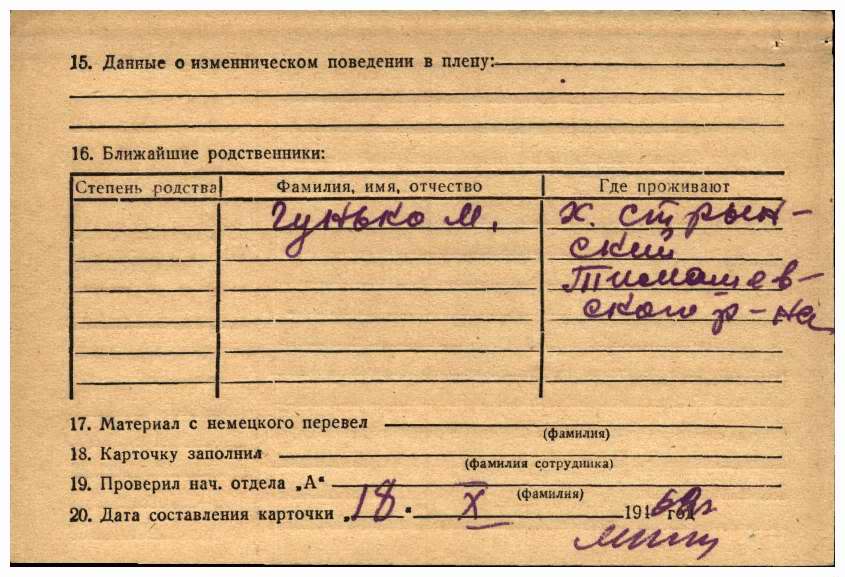 15. Данные о изменническом поведении в плену:
16. Ближайшие родственники:
Степень родства Фамилия, имя, отчество Где проживают
Гунько М. х. Стрын-
ский
Тимашев-
ского р-на
17. Материал с немецкого перевел
(фамилия)
18. Карточку заполнил
(фамилия сотрудника)
19. Проверил нач. отдела „А“
(фамилия)
20. Дата составления карточки „18“ X 19 год